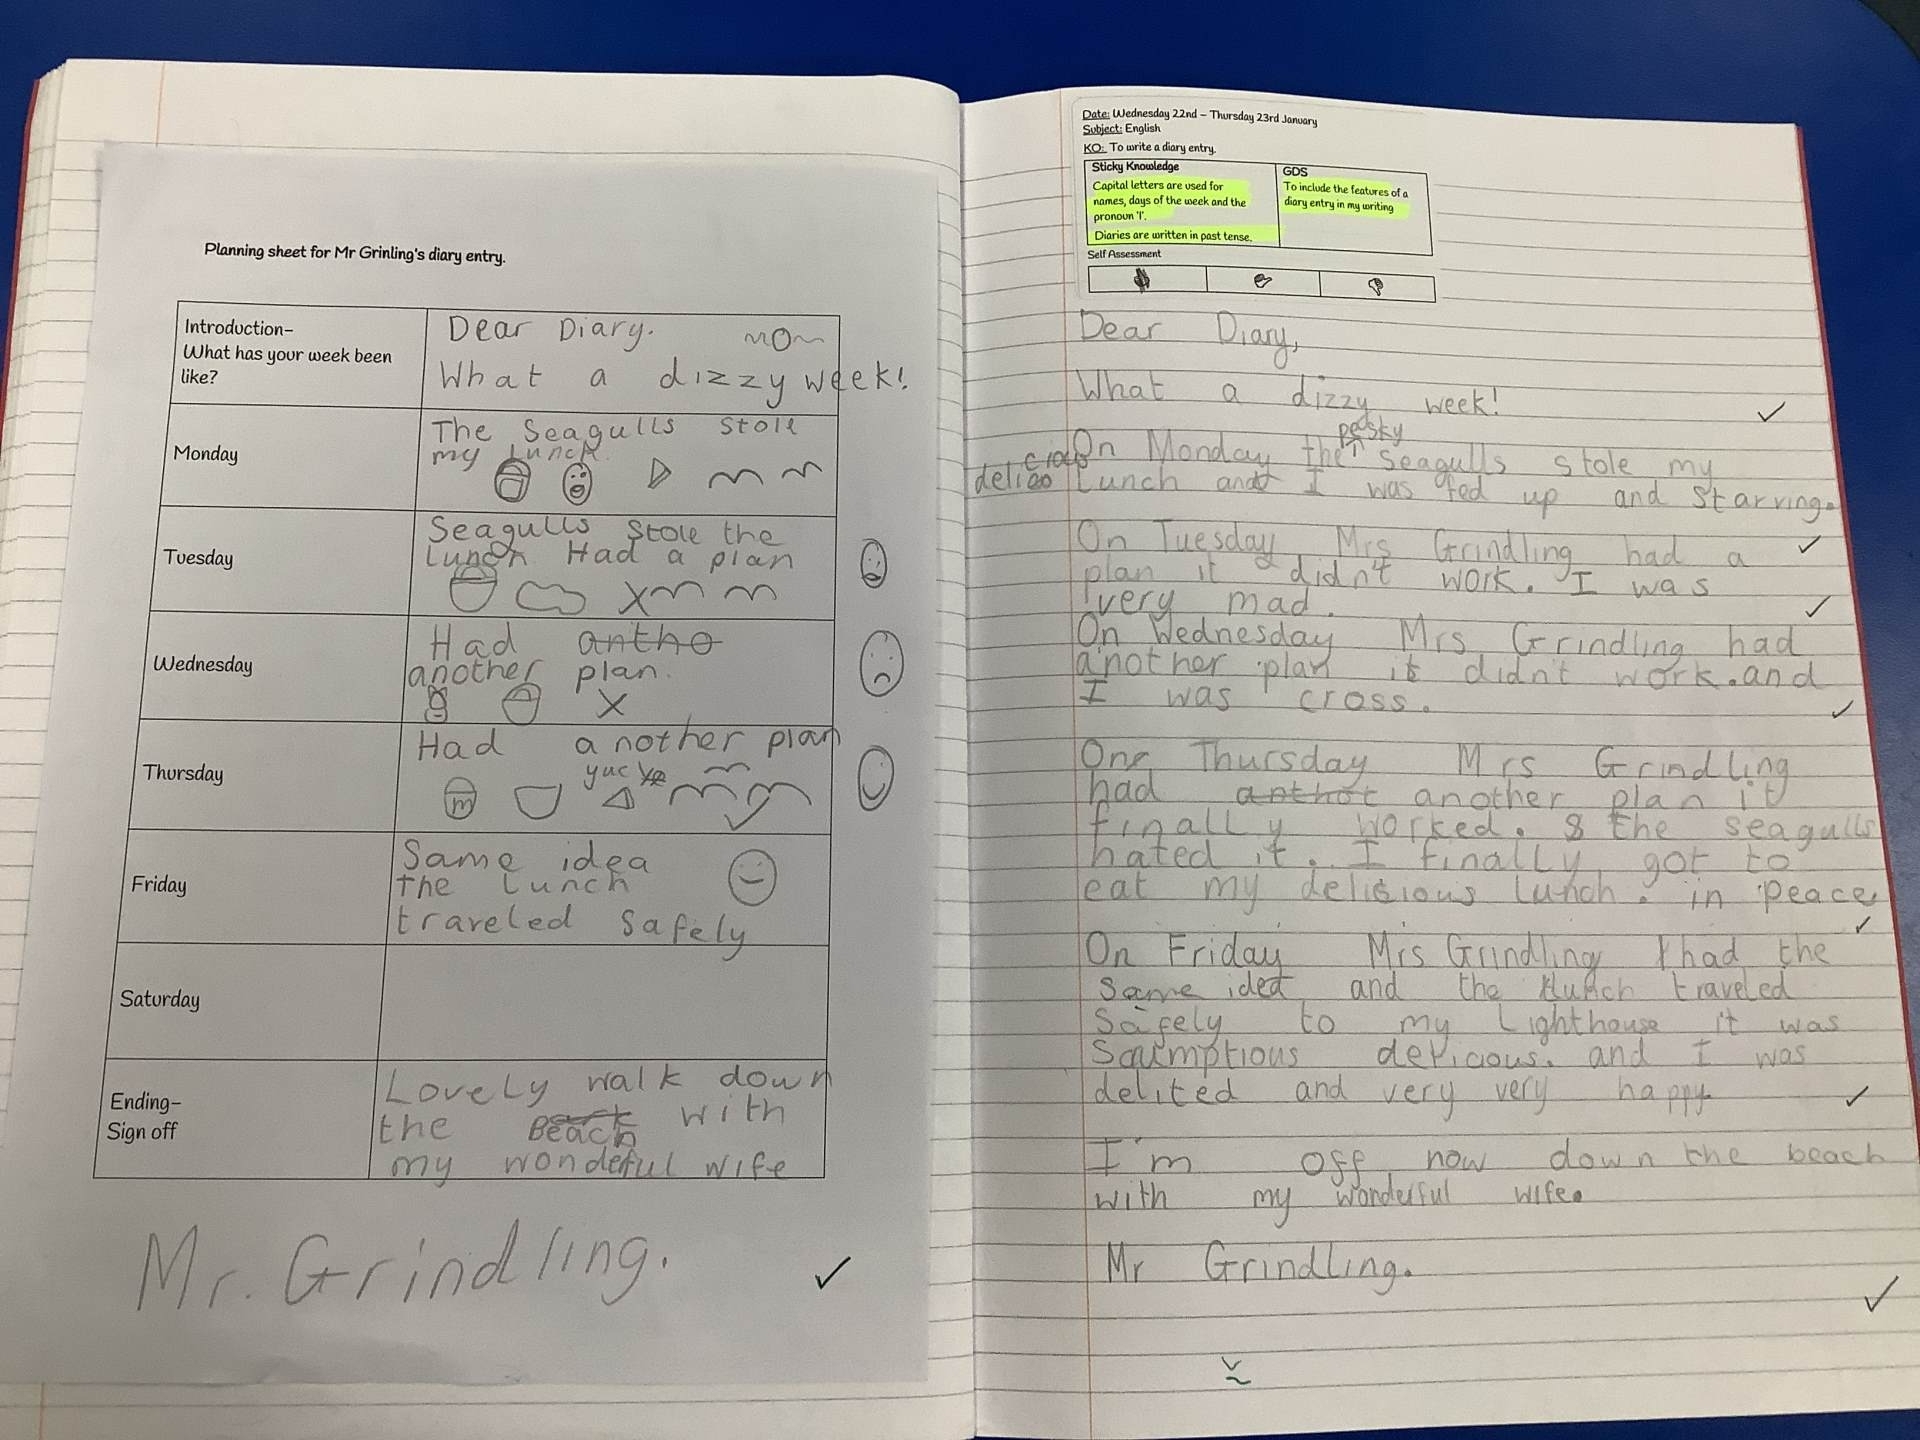 Planning sheet for Mr Grinling's diary entry.
Introduction-
What has your week been
like?
Dear Diary.
What a dizzy week!
Monday
The Seagulls stole
my lunch
Tuesday
Seagulls stole the
Lunch Had a plan
Wednesday
Had antho
another plan.
Thursday
Had another plan
yuck
Friday
Same idea
the Lunch
traveled safely
Saturday
Ending-
Sign off
Lovely walk down
the Beach with
my wondeful wife
Mr. Grindling.
Date: Wednesday 22nd – Thursday 23rd January
Subject: English
KO: To write a diary entry.
Sticky Knowledge
Capital letters are used for
names, days of the week and the
pronoun 'I'.
Diaries are written in past tense.
GDS
To include the features of a
diary entry in my writing
Self Assessment
Dear Diary,
What a dizzy week!
pesky
On Monday the seagulls stole my
Lunch and I was fed up and starving.
On Tuesday Mrs Grindling had a
plan it didn't work. I was
very mad.
On Wednesday Mrs Grindling had
another plan it didn't work.and
I was cross.
One Thursday Mrs Grindling
had anthot another plan it
finally worked. & the seagulls
hated it. I finally got to
eat my delicious lunch. in peace
On Friday Mrs Grindling had the
same idea and the lunch traveled
safely to my Lighthouse it was
Scumptious delicious. and I was
delited and very very happy.
I'm off now down the beach
with my wonderful wife.
Mr Grindling.